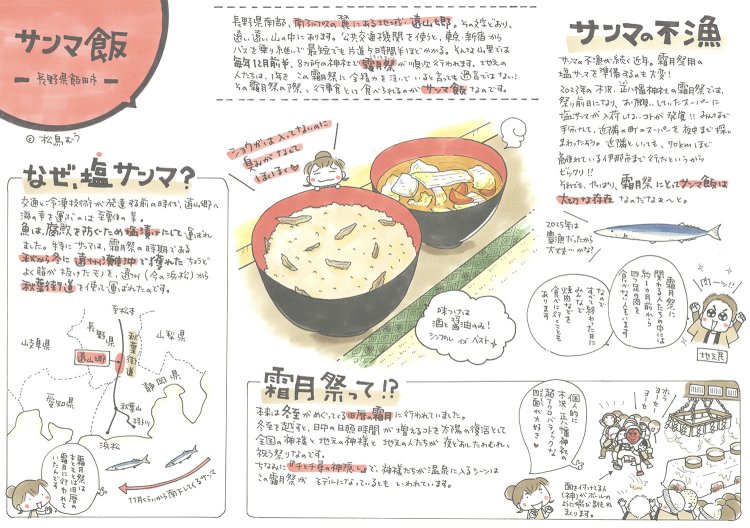 サンマ飯
ー長野県飯田市ー
© 松鳥むう
長野県南部、南アルプスの麓にある地域 遠山郷。その文字どおり、
遠い、遠い、山の中にあります。公共交通機関を使うと、東京・新宿から
バスを乗り継いで最短でも片道5時間半ほどかかる。そんな山里では
毎年12月前半、8カ所の神社で霜月祭が順次行われます。地元の
人たちは、1年をこの霜月祭に全精力を注いでいると言っても過言ではない!
その霜月祭の際、行事食として食べられるのがサンマ飯なのです。
サンマの不漁
サンマの不漁が続く近年。霜月祭用の
塩サンマを準備するのも大変!
2022年の木沢・正八幡神社の霜月祭では、
祭り前日になり、お願いしていたスーパーに
塩サンマが入荷しないコトが発覚!! みんなで
手分けして、近隣の町のスーパーを夜中まで探し
まわったそう。近隣といっても、70kmほど
離れている伊那市まで行ったというから
ビックリ!!
それでも、やっぱり、霜月祭にとってサンマ飯は
大切な存在なのだなぁ〜と。
2025年は
豊漁だったから
大丈夫かな?
ショウガは入ってないのに
臭みがなくて
ほくほく
なぜ、塩サンマ?
交通や冷凍技術が発達する前の時代で、遠山郷へ
海の幸を運ぶのは至難の業。
魚は、腐敗を防ぐため塩漬けにして運ばれ
ました。特にサンマは、霜月祭の時期である
秋から冬に遠州灘沖で獲れたちょうど
よく脂が抜けたモノを、遠州(今の浜松)から
秋葉街道を使って運ばれたのです。
至松本
長野県
山梨県
岐阜県
秋葉街道
遠山郷
静岡県
愛知県
秋葉山
浜松
11月くらいから南下してくるサンマ
霜月祭は
もともとは旧暦の
霜月に行われて
いたんです
味つけは
酒と醤油のみ!
シンプル イズ ベスト
霜月祭に
関わる人たちの中には
約1ヶ月前から
四つ足の肉を
食べない人もいます
なので
すべて終わった日に
みんなで
焼肉などを
食べに行くことも
あります
肉ーッ!!
地元民
霜月祭って!?
本来は冬至がめぐってくる旧暦の霜月に行われていました。
冬至を越すと、日中の日照時間が増えるコトを太陽の復活として
全国の神様と地元の神様と地元の人たちが夜どおしたわむれ、
祝う祭りなのです。
ちなみに『千と千尋の神隠し』で、神様たちが温泉に入るシーンは
この霜月祭がモデルになっているともいわれています。
個人的に
木沢・正八幡神社の
超アクロバティックな
四面が大好き
ヨーセ
ヨーセ
面を付けてる人
(神)がボールの
ように飛び跳ね
まくります。